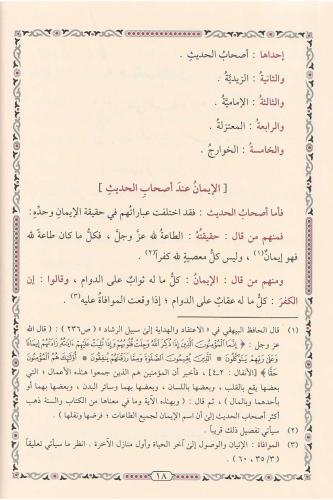 إحداها : أصحاب الحديث .
والثانية : الزيدية .
والثالثة : الإمامية .
والرابعة : المعتزلة .
والخامسة : الخوارج .
[ الإيمان عند أصحاب الحديث ]
فأما أصحاب الحديث : فقد اختلفت عباراتهم في حقيقة الإيمان وحده :
فمنهم من قال : حقيقته : الطاعة لله عز وجل ، فكل ما كان طاعة لله
فهو إيمان(١) ، وليس كل معصية لله كفرا(٢) .
ومنهم من قال : الإيمان : كل ما له ثواب على الدوام ، وقالوا : إن
الكفر : كل ما له عقاب على الدوام ؛ إذا وقعت الموافاة عليه(٣)
(١) قال الحافظ البيهقي في « الاعتقاد والهداية إلى سبيل الرشاد » ( ص٢٣٦ ) : ( قال الله
عز وجل : ﴿ إنما المؤمنون الذين إذا ذكر الله وجلت قلوبهم وإذا تليت عليهم آياته زادتهم إيمانا
وعلى ربهم يتوكلون ۞ الذين يقيمون الصلاة ومما رزقناهم ينفقون ۞ أولئك هم المؤمنون
حقا ﴾ [ الأنفال : ٢-٤ ] ، فأخبر أن المؤمنين هم الذين جمعوا هذه الأعمال ؛ التي
بعضها يقع بالقلب ، وبعضها باللسان ، وبعضها بهما وسائر البدن ، وبعضها بهما أو
بأحدهما وبالمال ) ، ثم قال : ( وبهذه الآية وما في معناها من الكتاب والسنة ذهب
أكثر أصحاب الحديث إلى أن اسم الإيمان لجميع الطاعات ؛ فرضها ونفلها ) .
(٢) سيأتي تفصيل ذلك قريبا .
(٣) الموافاة : الإتيان والوصول إلى آخر الحياة وأول منازل الآخرة . انظر ما سيأتي تعليقا
( ٣٥/٣ ، ٦٠ ) .
١٨